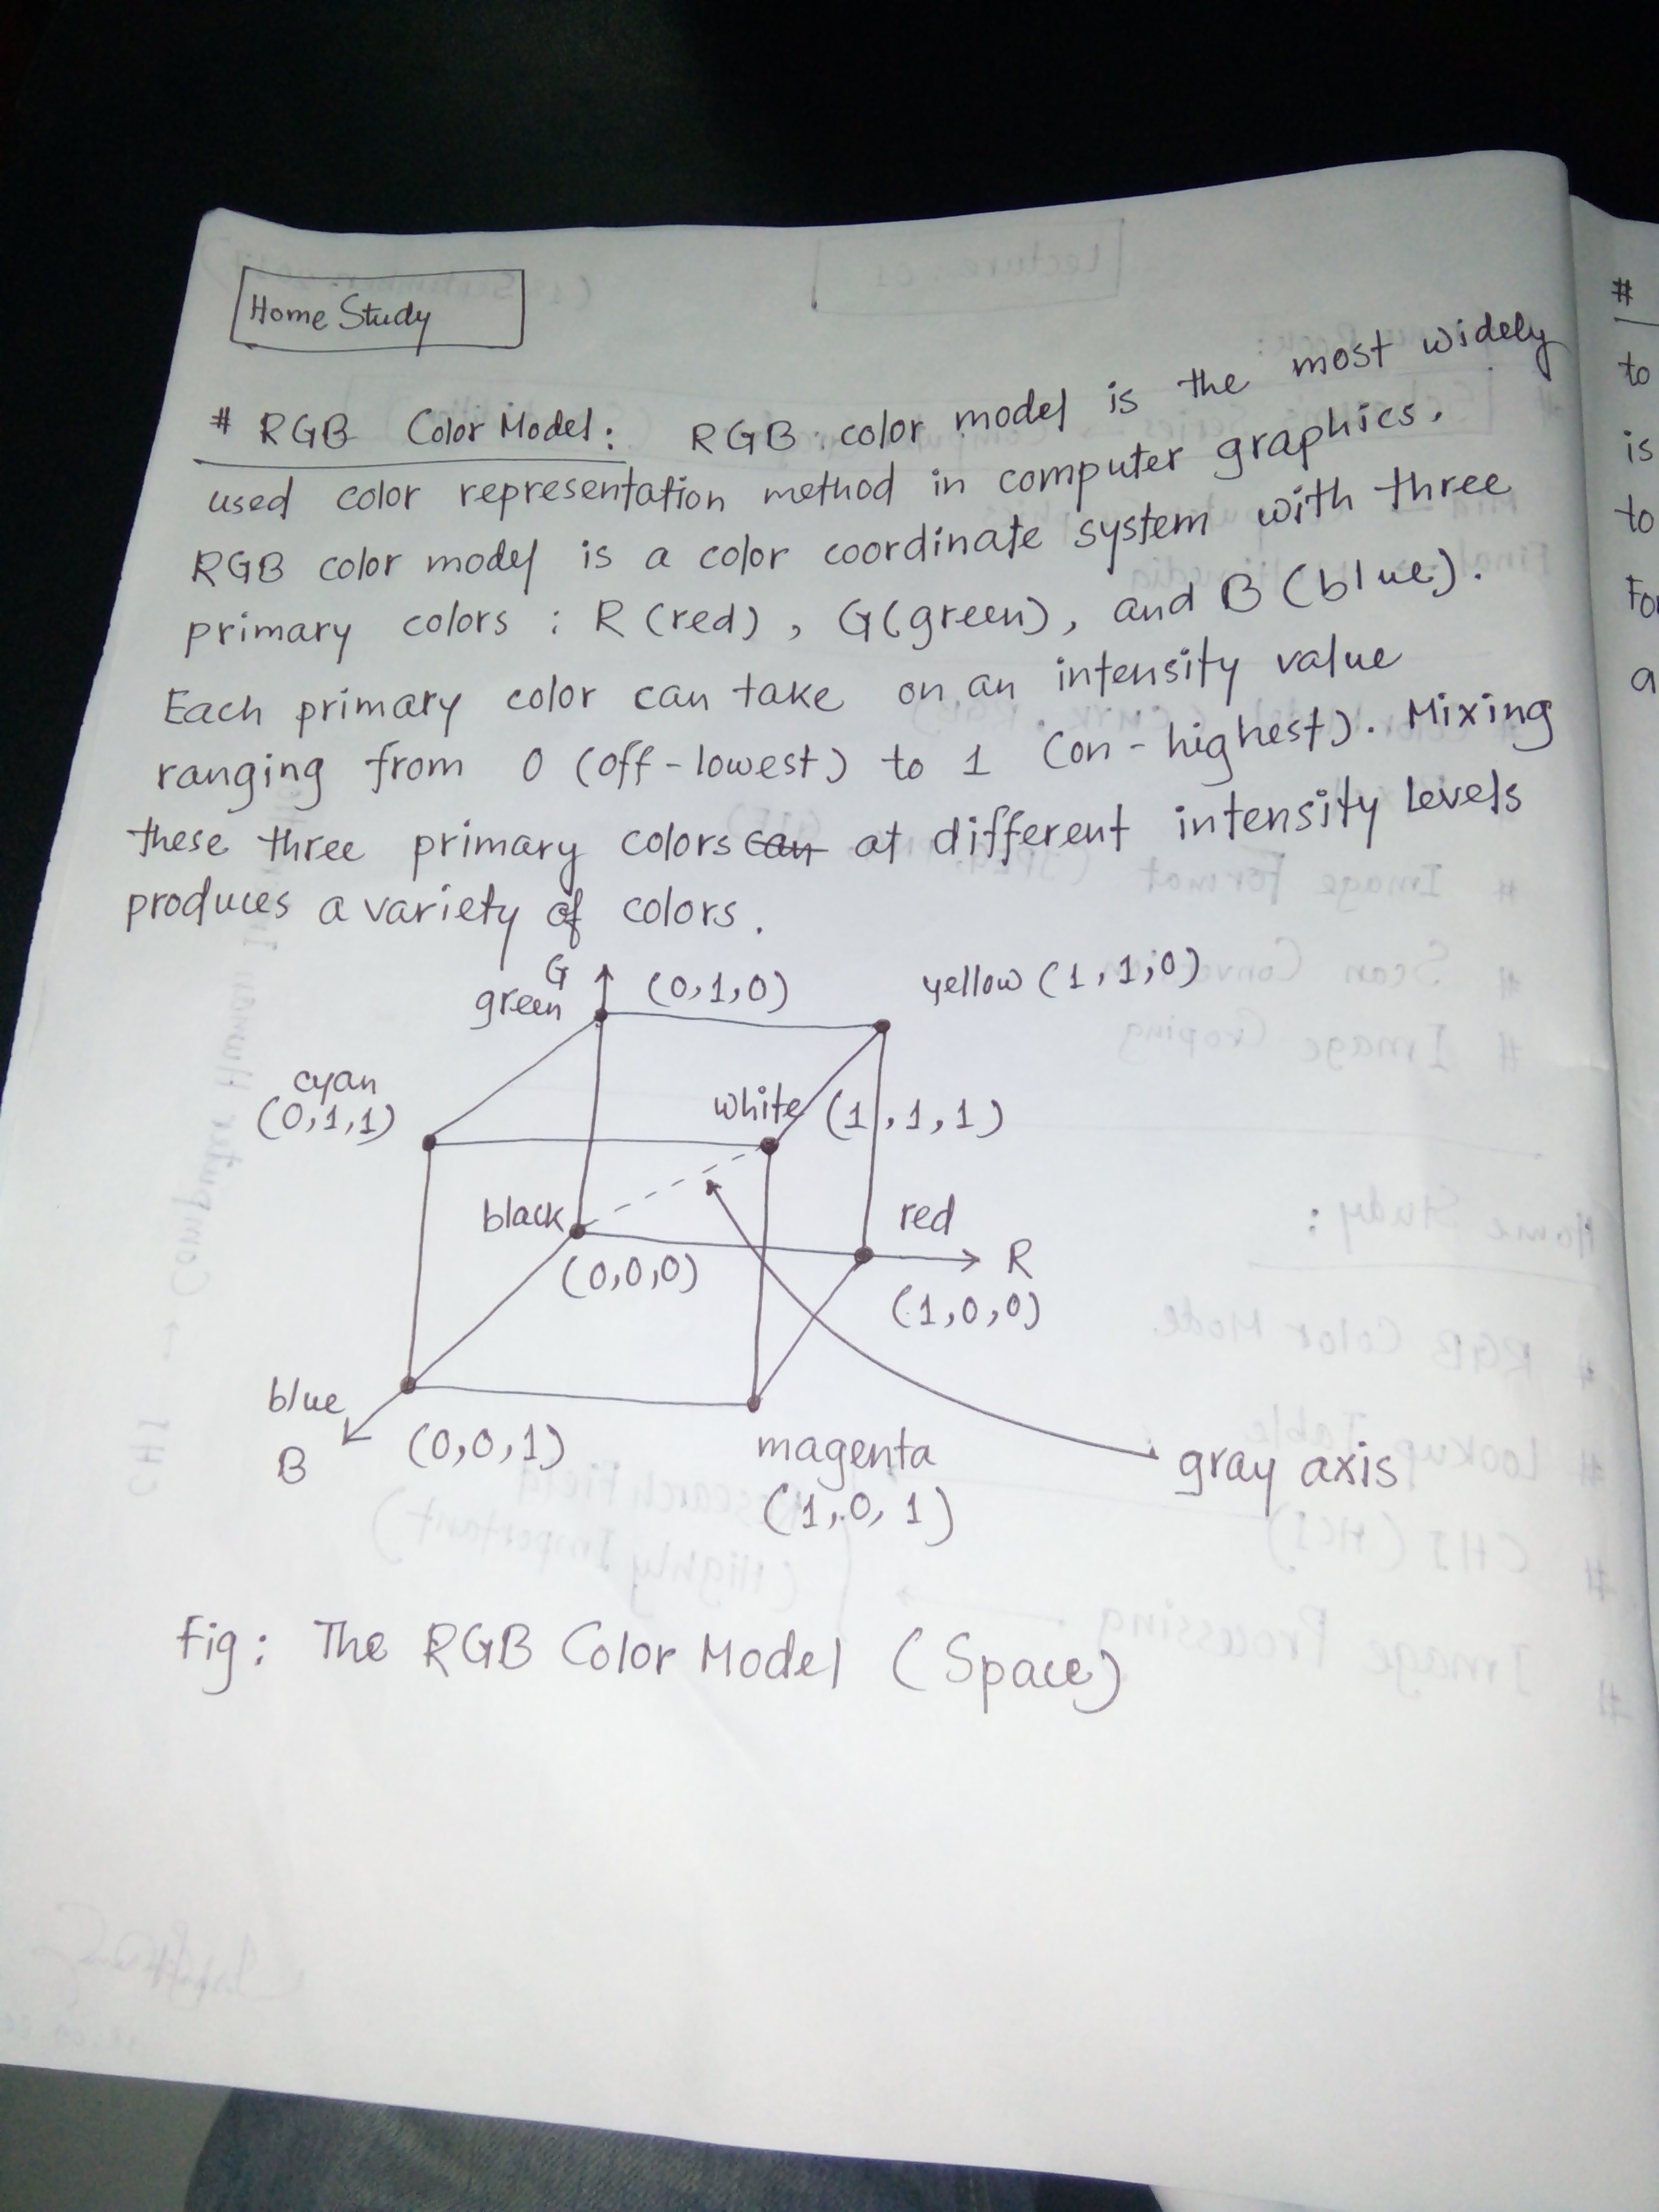 Home Study
# RGB Color Model: RGB color model is the most widely
used color representation method in computer graphics.
RGB color model is a color coordinate system with three
primary colors : R (red), G(green), and B (blue).
Each primary color can take on an intensity value
ranging from 0 (off-lowest) to 1 (on-highest). Mixing
these three primary colors can at different intensity levels
produces a variety of colors.
G
green (0,1,0) yellow (1,1,0)
cyan
(0,1,1)
white (1,1,1)
black
(0,0,0)
red
R
(1,0,0)
blue
B
(0,0,1)
magenta
(1,0,1)
gray axis
Fig: The RGB Color Model (Space)
#
to
is
to
a